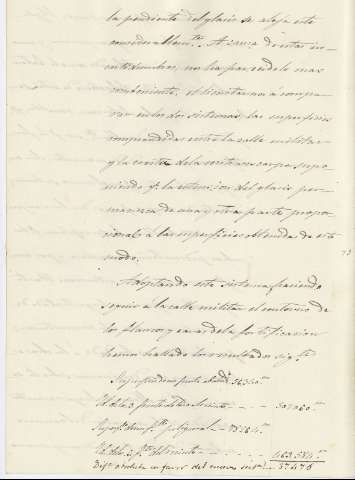 la pendiente del glasis se aleja este
considerablem.te A causa de estas in-
certidumbres, nos ha parecido lo mas
conveniente, el limitarnos a compa-
rar en los dos sistemas, las superficies
comprendidas entre la calle militar
y la cresta de la contraescarpa supo-
niendo q.e la estension del glasis per-
manezca de una y otra parte propor-
cional a las superficies obtenidas de este
modo.
Adoptando este sistema, haciendo
seguir á la calle militar el contorno de
los flancos y caras de la fortificacion
hemos hallado los resultados sig.tes
Superf de un frente
Id. de los frentes del recinto
Superf de un f.te poligonal
Id. de los f.tes del recinto 463.584
Dif.a absoluta en favor del nuevo sist.a 37476